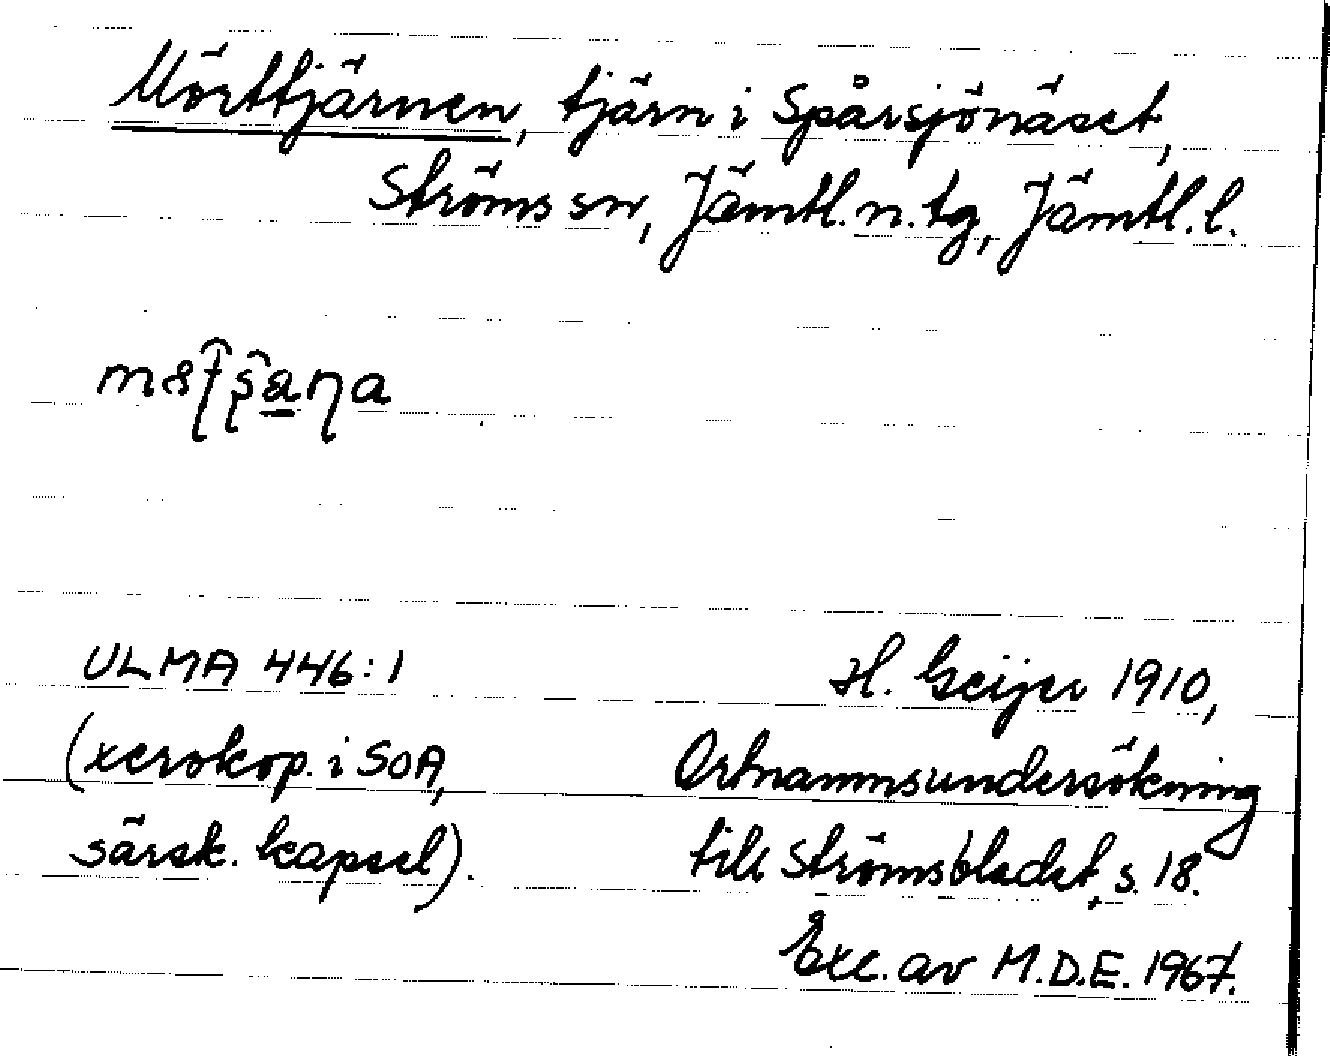 Mörttjärnen, tjärn i Spårsjönäset,
Ströms sn, Jämtl. n. tg, Jämtl. l.
ULMA 446:1
H. Geijer 1910,
(xerokop. i SOA,
Ortnamnsundersökning
särsk. kapsel).
till Strömsbladet, s. 18.
Exc. av M.D.E. 1967.